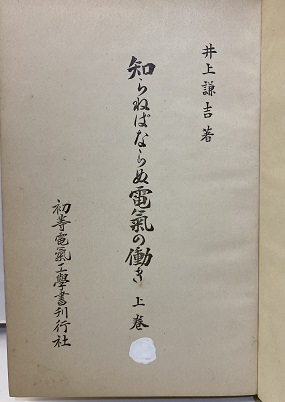 井上謙吉著
知らねばならぬ電氣の働き 上巻
初等電氣工學書刊行社